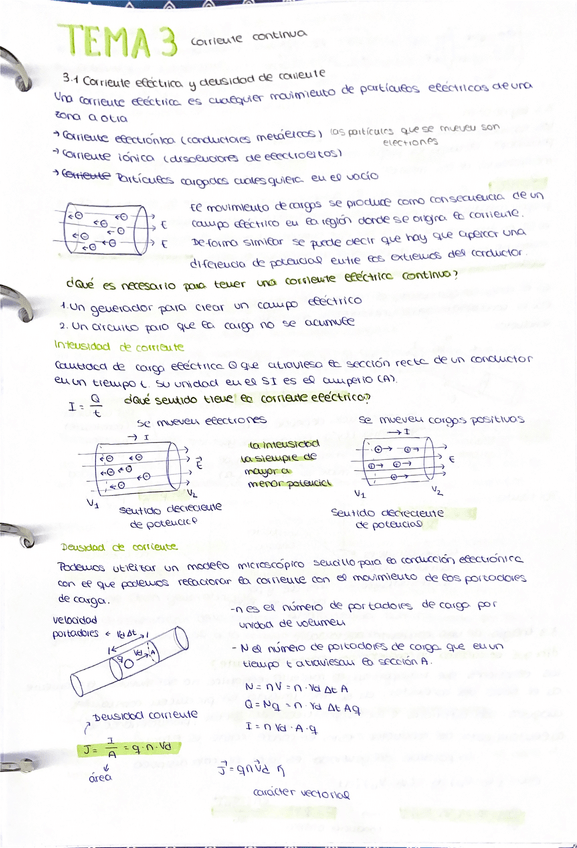 TEMA 3 corriente continua
3.1 Corriente eléctrica y densidad de corriente
Una corriente eléctrica es cualquier movimiento de partículas eléctricas de una
zona a otra
→ Corriente electrónica (conductores metálicos) las partículas que se mueven son
electrones
→ Corriente iónica (disoluciones de electrolitos)
→ Corriente Partículas cargadas cualesquiera en el vacío
El movimiento de cargas se produce como consecuencia de un
campo eléctrico en la región donde se origina la corriente.
De forma similar se puede decir que hay que aplicar una
diferencia de potencial entre los extremos del conductor.
E
E
¿Qué es necesario para tener una corriente eléctrica continua?
1. Un generador para crear un campo eléctrico
2. Un circuito para que la carga no se acumule
Intensidad de corriente
Cantidad de carga eléctrica Q que atraviesa la sección recta de un conductor
en un tiempo t. Su unidad en el SI es el amperio (A).
I = Q/t ¿Qué sentido tiene la corriente eléctrica?
se mueven electrones
se mueven cargas positivas
→ I
→ I
la intensidad
va siempre de
mayor a
menor potencial
E
E
V1 V2
V1 V2
sentido decreciente
de potencial
Sentido decreciente
de potencial
Densidad de corriente
Podemos utilizar un modelo microscópico sencillo para la conducción electrónica
con el que podemos relacionar la corriente con el movimiento de los portadores
de carga.
velocidad
portadores ← Vd Δt
q Vd A
- n es el número de portadores de carga por
unidad de volumen
- N el número de portadores de carga que en un
tiempo t atraviesan la sección A.
N = nV = n · Vd Δt A
Q = Nq = n · Vd Δt A q
I = n Vd · A · q
Densidad corriente
J = I/A = q · n · Vd
área
J = q n Vd
carácter vectorial